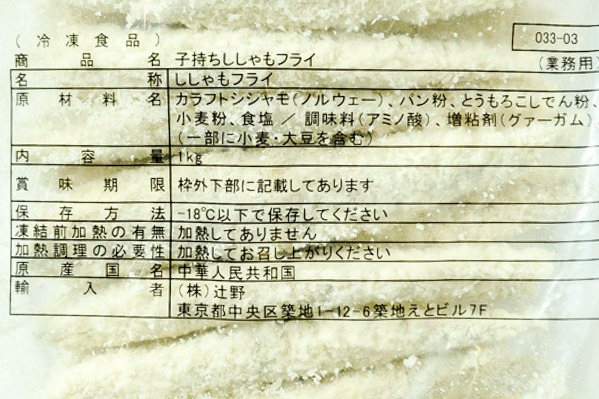 (冷凍食品)
033-03
商品名 子持ちししゃもフライ (業務用)
名称 ししゃもフライ
原材料名 カラフトシシャモ(ノルウェー)、パン粉、とうもろこしでん粉、
小麦粉、食塩／調味料(アミノ酸)、増粘剤(グァーガム)
(一部に小麦・大豆を含む)
内容量 1kg
賞味期限 枠外下部に記載してあります
保存方法 -18℃以下で保存してください
凍結前加熱の有無 加熱してありません
加熱調理の必要性 加熱してお召し上がりください
原産国名 中華人民共和国
輸入者 (株)辻野
東京都中央区築地1-12-6築地えとビル7F